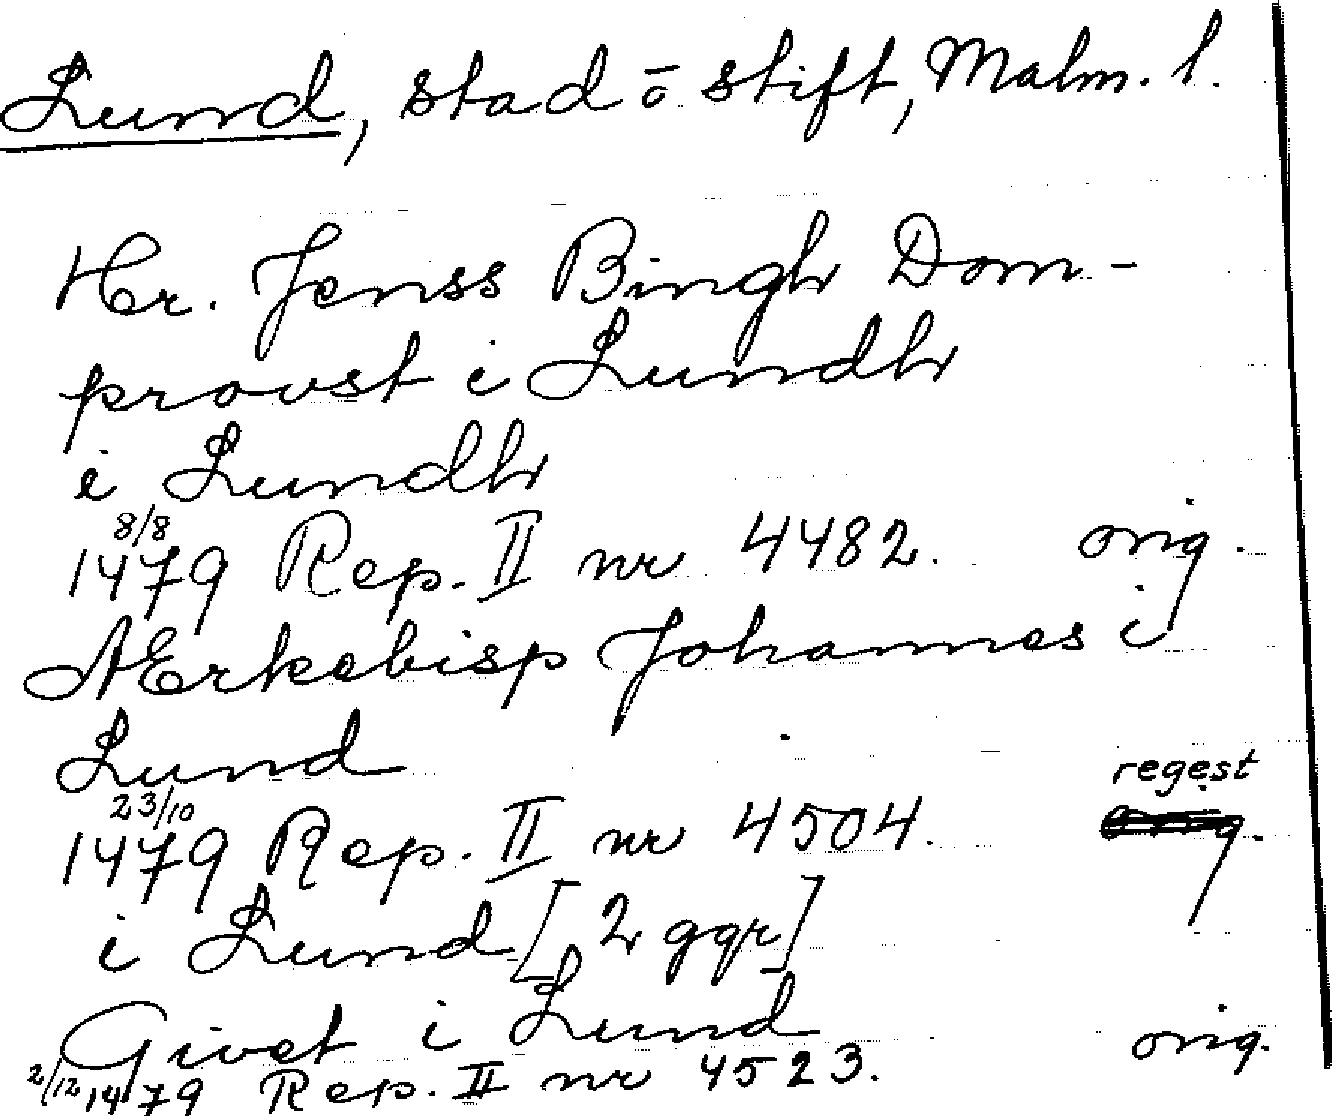 Lund, stad o stift, Malm. l.
Hr. Jenss Bingh Dom-
provst i Lundh
i Lundh
8/8
1479 Rep. II nr 4482. orig.
Ærkebisp Johannes i
Lund
regest
23/10
1479 Rep. II nr 4504. orig.
i Lund [2 ggr]
Givet i Lund
2/12 1479 Rep. II nr 4523. orig.